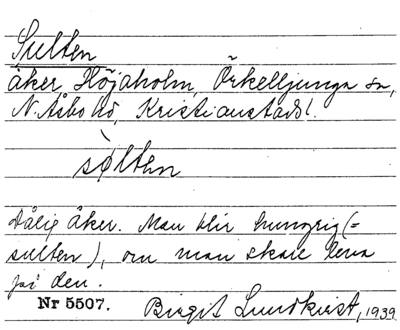 Sulten
åker, Höjaholm, Örkelljunga sn,
N. Åsbo hd, Kristianstads l.
sø̀lten
Dålig åker. Man blir hungrig (=
sulten), om man skall leva
på den.
Nr 5507. Birgit Lundkvist, 1939